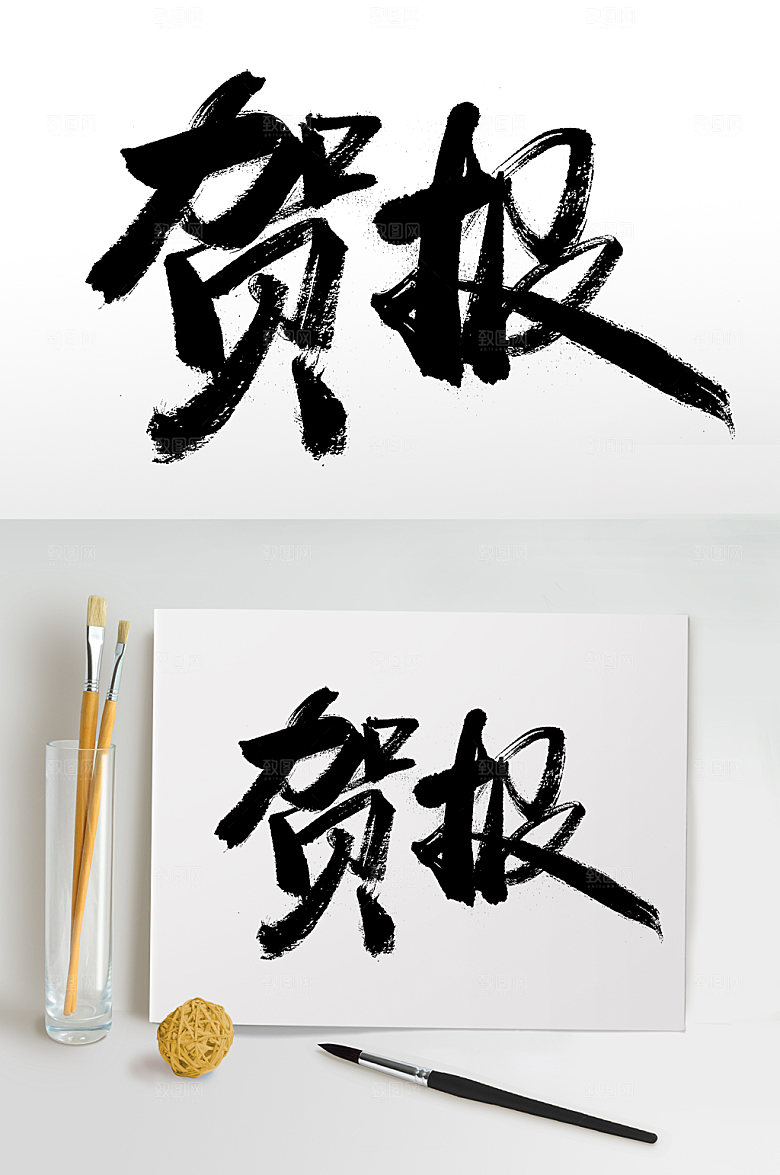 贺报
贺报